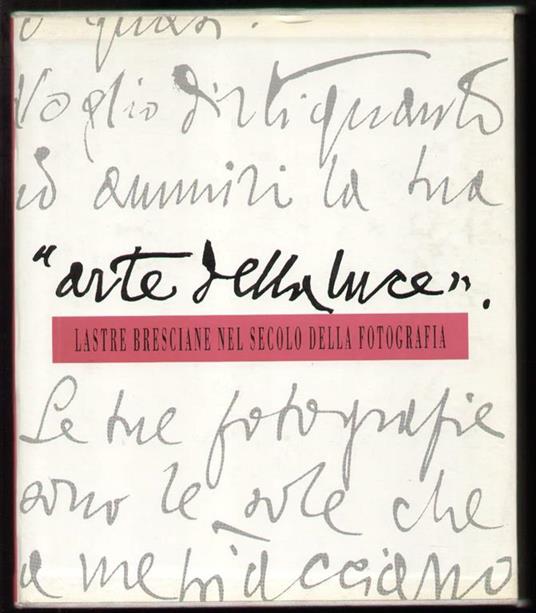 o quasi.
Voglio dirti quanto
ed ammiri la tua
"arte della luce".
LASTRE BRESCIANE NEL SECOLO DELLA FOTOGRAFIA
Le tue fotografie
sono le sole che
a me